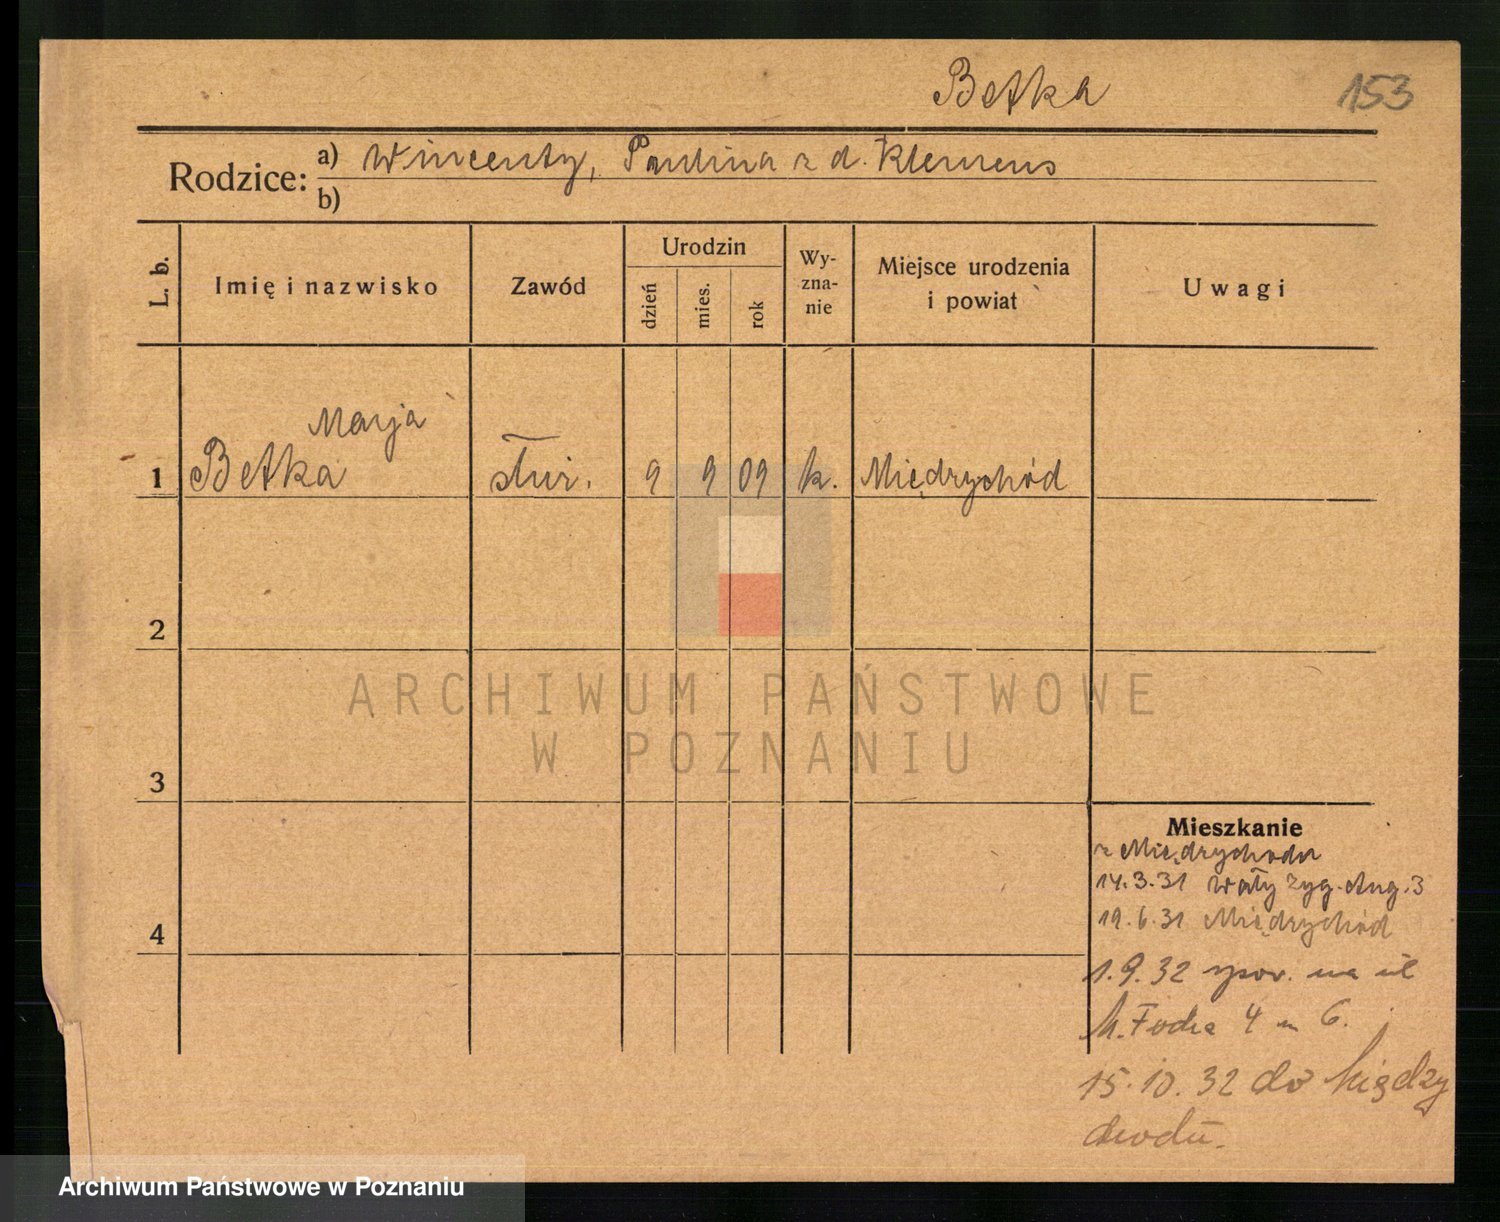 Betka 153
Rodzice: a) Wincenty, Paulina z d. Klemens
b)
L. b. Imię i nazwisko Zawód Urodzin dzień mies. rok Wy-zna-nie Miejsce urodzenia i powiat Uwagi
Marja
1 Betka służ. 9 9 09 k. Międzychód
2
3
4
Mieszkanie
z Międzychodu
14.3.31 Wały Zyg. Aug. 3
19.6.31 Międzychód
1.9.32 zpow. na ul
M. Focha 4 m 6.
15.10.32 do Między
chodu.
ARCHIWUM PAŃSTWOWE
W POZNANIU
Archiwum Państwowe w Poznaniu